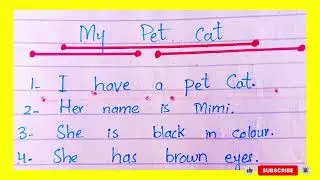 My Pet Cat
1- I have a pet Cat.
2- Her name is Mimi.
3- She is black in colour.
4- She has brown eyes.